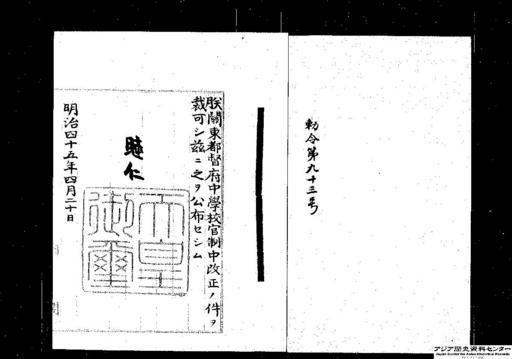 勅令第九十三号
朕關東都督府中學校官制中改正ノ件ヲ
裁可シ茲ニ之ヲ公布セシム
睦仁
天皇
御璽
明治四十五年四月二十日
アジア歴史資料センター
Japan Center for Asian Historical Records